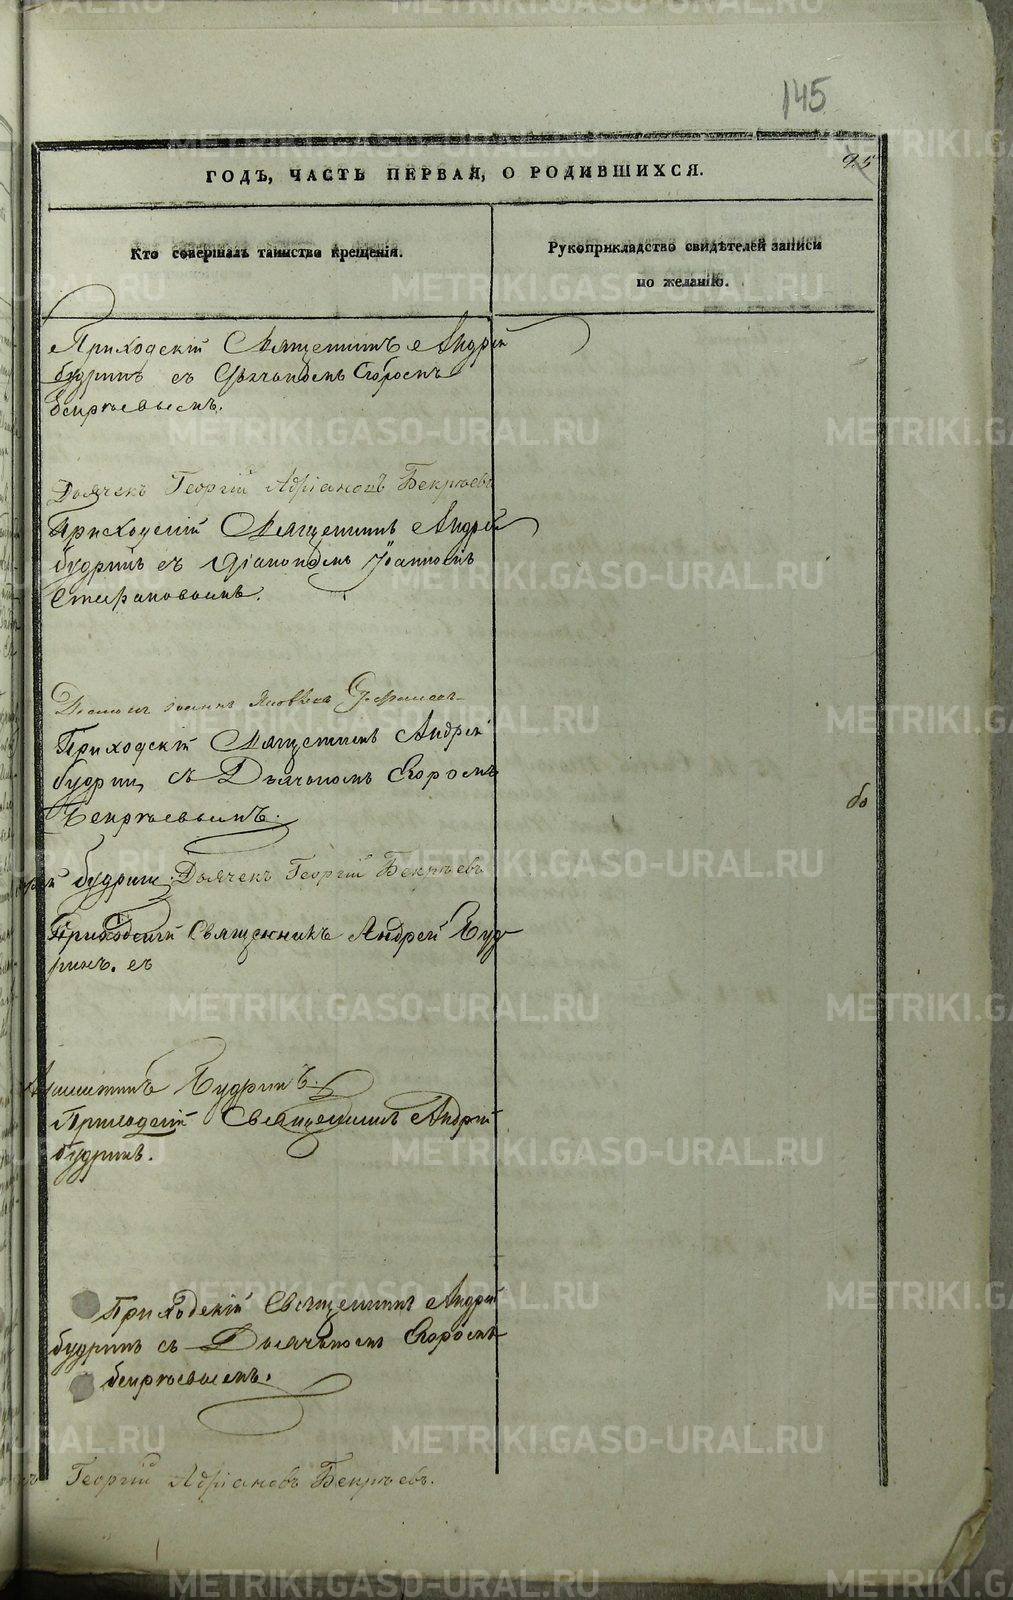 145
95
ГОДЪ, ЧАСТЬ ПЕРВАЯ, О РОДИВШИХСЯ.
Кто совершалъ таинство крещенія.
Рукоприкладство свидѣтелей записи
по желанію.
Приходскій Священникъ Андрей
Будринъ съ Дьячькомъ Егоромъ
Бекряевымъ.
Дьячекъ Георгій Адріановъ Бекряевъ
Приходскій Священникъ Андрей
Будринъ съ Діакономъ Іоанномъ
Стефановымъ.
Діаконъ Іоаннъ
Приходскій Священникъ Андрей
Будринъ, съ Дьячькомъ Егоромъ
Бекряевымъ.
Будринъ. Дьячекъ Георгій Бекряевъ
Приходскій Священникъ Андрей Буд
ринъ. съ
Будринъ.
Приходскій Священникъ Андрей
Будринъ.
бо
Приходскій Священникъ Андрей
Будринъ съ Дьячькомъ Егоромъ
Бекряевымъ.
Георгій Адріановъ Бекряевъ.
METRIKI.GASO-URAL.RU